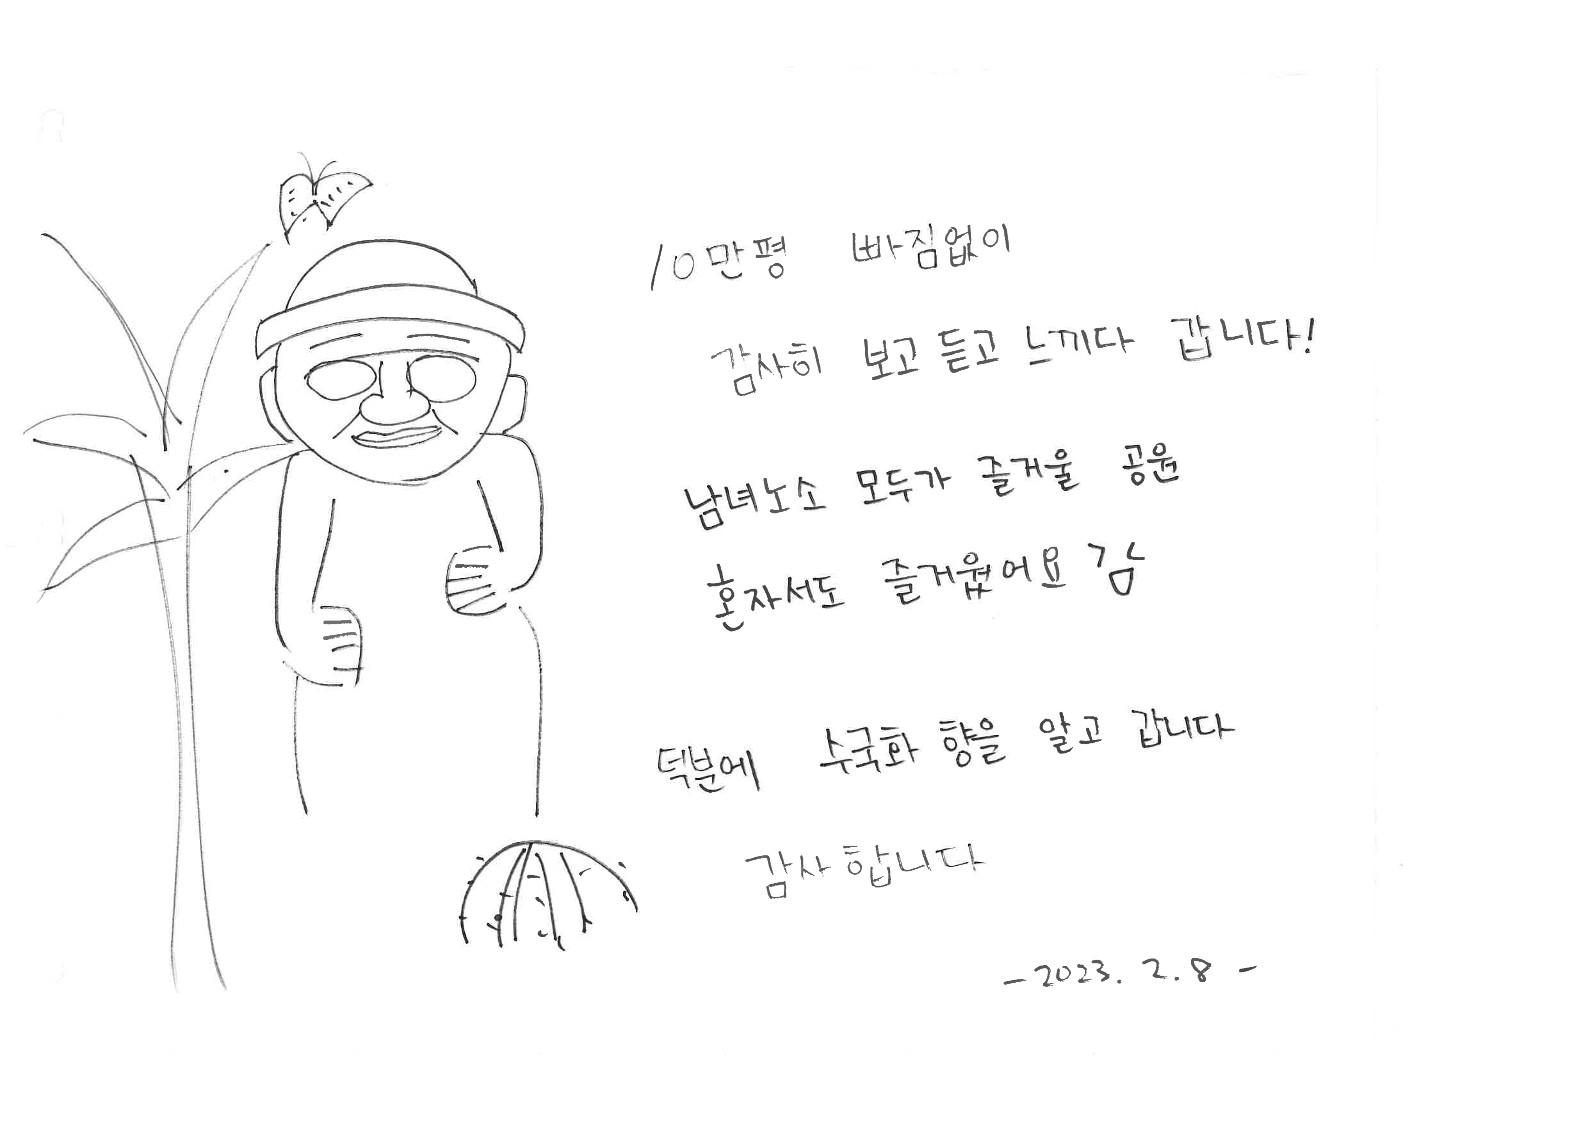 10만평 빠짐없이
감사히 보고 듣고 느끼다 갑니다!
남녀노소 모두가 즐거울 공원
혼자서도 즐거웠어요 감
덕분에 수국화 향을 알고 갑니다
감사합니다
-2023. 2. 8 -